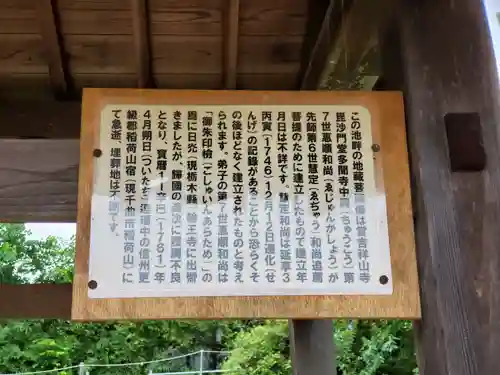 この池畔の地蔵菩薩像は當吉祥山
毘沙門堂多聞寺中興(ちゅうこう)第
7世惠順和尚(ゑじゅんかしょう)が
先師第6世慧定(ゑぢゃう)和尚追薦
菩提のために建立したもので建立年
月日は不詳です。慧定和尚は延享3
丙寅(1746)12月12日遷化(せ
んげ)の記録があることから恐らくそ
の後ほどなく建立されたものと考え
られます。弟子の第7世惠順和尚は
「御朱印檢(ごしゅいんあらため)」の
因に日光(現栃木県 輪王寺)に出向
きましたが、歸國の 次に體調不良
となり、寶暦11辛巳(1761)年
4月朔日(ついたち)道中の信州更
級郡稲荷山宿(現千曲市稲荷山)に
て急逝、埋葬地は不明です。